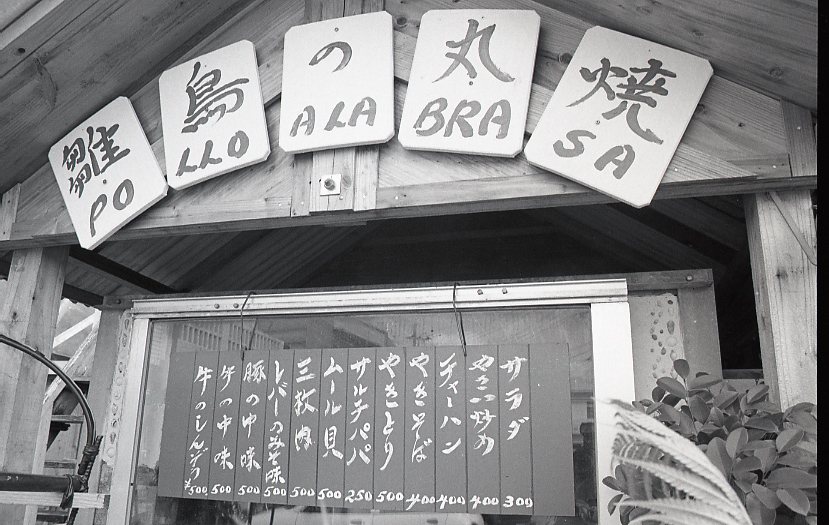 雛 鳥 の 丸 焼
PO LLO A LA BRA SA
サラダ 300
やさい炒め 400
チャーハン 400
やきそば 400
やきとり 500
サルチパパ 250
ムール貝 500
三枚肉 500
レバーのみそ味 500
豚の中味 500
牛の中味 500
牛のしんぞう ¥500